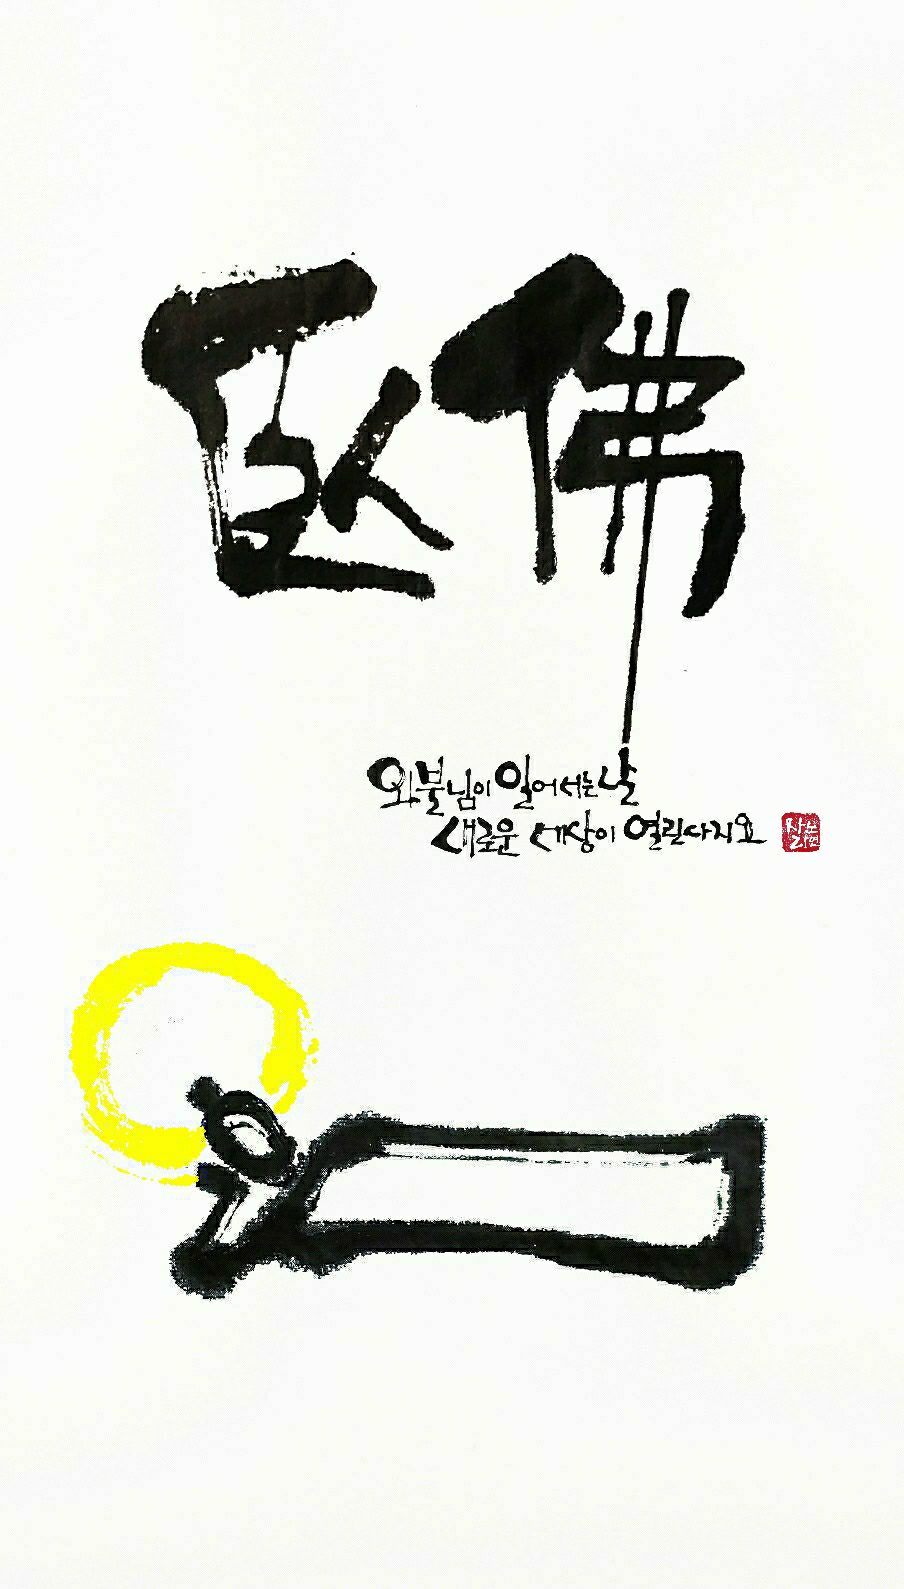 臥佛
와불님이 일어서는 날
새로운 세상이 열린다지요